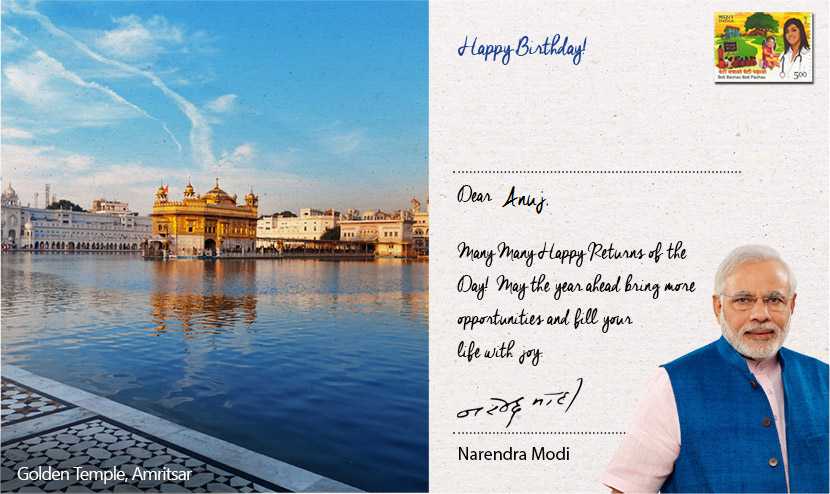 Golden Temple, Amritsar
Happy Birthday!
INDIA
बेटी बचाओ बेटी पढ़ाओ
Beti Bachao Beti Padhao
500
Dear Anuj,
Many Many Happy Returns of the
Day! May the year ahead bring more
opportunities and fill your
life with joy.
नरेन्द्र मोदी
Narendra Modi